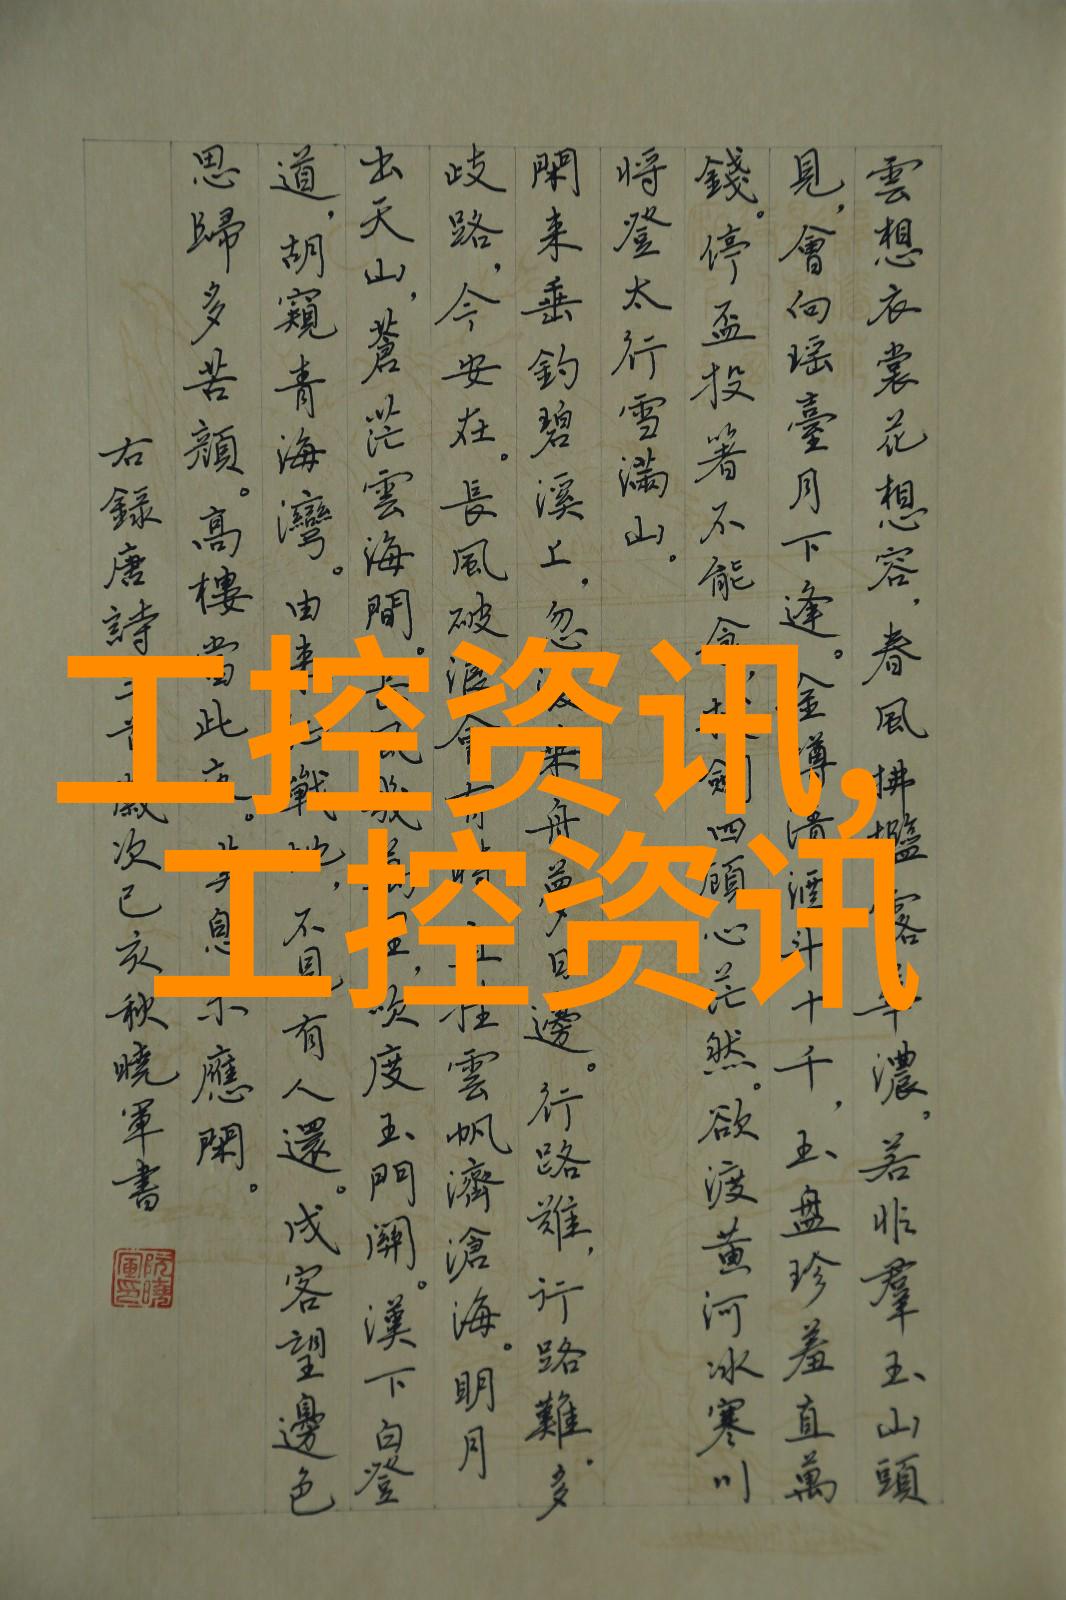 雲想衣裳花想容，春風拂檻露華濃。若非羣玉山頭
見，會向瑶臺月下逢。金樽清酒斗十千，玉盤珍羞直萬
錢。停盃投箸不能食，拔劍四顧心茫然。欲渡黄河冰寒川
将登太行雪滿山。
閑来垂釣碧溪上，忽復乘舟夢日邊。行路難，行路難。多
歧路，今安在。長風破浪會有時，直挂雲帆濟滄海。明月
出天山，蒼茫雲海間。長風幾萬里，吹度玉門關。漢下白登
道，胡窺青海灣。由来征戰地，不見有人還。戍客望邊色
思歸多苦顔。高樓當此夜。歎息不應閑。
右録唐詩三首歲次己亥秋曉軍書
阮曉軍印
工控资讯,
工控资讯